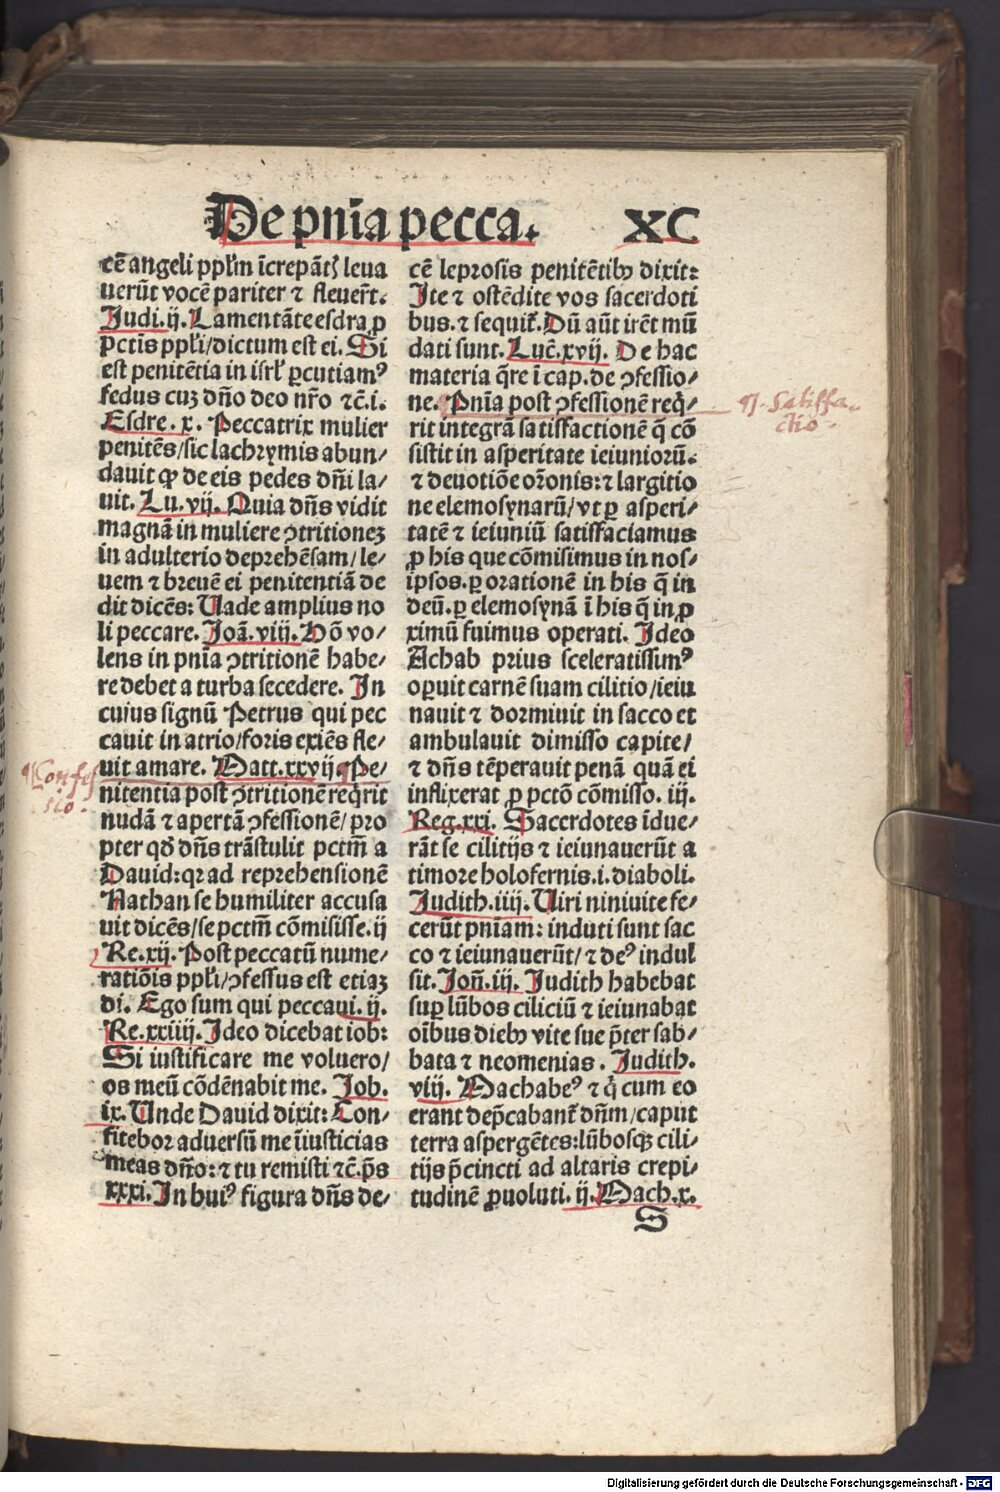 De pnĩa pecca. XC
cẽ angeli pplm̃ ĩcrepãtꝭ leua
uerũt vocẽ pariter ⁊ fleuert̃.
Judi.ij. Lamentãte esdra ꝓ
pctĩs ppli̾/dictum est ei. Si
est penitẽtia in isrl̾ ꝑcutiamꝰ
fedus cuʒ dño deo nr̃o ⁊c̃.i.
Esdre.x. Peccatrix mulier
penitẽs/sic lachrymis abun/
dauit ꝙ de eis pedes dñi la/
uit. Lu.vij. Quia dñs vidit
magnã in muliere ↄtritioneʒ
in adulterio deprehẽsam/le/
uem ⁊ breuẽ ei penitentiã de
dit dicẽs: Uade amplius no
li peccare. Joã.viij. Hõ vo/
lens in pnĩa ↄtritionẽ habe/
re debet a turba secedere. In
cuius signũ Petrus qui pec
cauit in atrio/foris exiẽs fle/
uit amare. Matt.xxvij. ¶Pe/
nitentia post ↄtritionẽ req̃rit
nudã ⁊ apertã ↄfessionẽ/pro
pter qd̾ dñs trãstulit pctm̃ a
Dauid: qꝛ ad reprehensionẽ
Nathan se humiliter accusa
uit dicẽs/se pctm̃ cõmisisse. ij
Re.xij. Post peccatũ nume/
ratiõis ppli̾/ↄfessus est etiaʒ
di. Ego sum qui peccaui. ij.
Re.xxiiij. Ideo dicebat iob:
Si iustificare me voluero/
os meũ cõdẽnabit me. Job.
ix. Unde Dauid dixit: Con/
fitebor aduersũ me ĩiusticias
meas dño: ⁊ tu remisti ⁊c̃. p̃s
xxxi. In huiꝰ figura dñs de/
¶Confes
sio.
cẽ leprosis penitẽtibꝰ dixit:
Ite ⁊ ostẽdite vos sacerdoti
bus. ⁊ sequit̃. Dũ aũt irẽt mũ
dati sunt. Luc̃.xvij. De hac
materia q̃re ĩ cap. de ↄfessio/
ne. Pnĩa post ↄfessionẽ req̃/
rit integrã satisfactionẽ q̃ cõ
sistit in asperitate ieiuniorũ.
⁊ deuotiõe or̃onis: ⁊ largitio
ne elemosynarũ/vt ꝑ asperi/
tatẽ ⁊ ieiuniũ satisfaciamus
ꝓ his que cõmisimus in nos/
ipsos. ꝑ orationẽ in his q̃ in
deũ. ꝑ elemosynã ĩ his q̃ in ꝓ
ximũ fuimus operati. Ideo
Achab prius sceleratissimꝰ
oꝑuit carnẽ suam cilitio/ieiu
nauit ⁊ dormiuit in sacco et
ambulauit dimisso capite/
⁊ dñs tẽperauit penã quã ei
inflixerat ꝓ pctõ cõmisso. iij.
Reg.xxi. Sacerdotes ĩdue/
rãt se cilitijs ⁊ ieiunauerũt a
timore holofernis .i. diaboli.
Judith.iiij. Uiri niniuite fe/
cerũt pnĩam: induti sunt sac
co ⁊ ieiunauerũt/⁊ deꝰ indul
sit. Joñ.iij. Judith habebat
suꝑ lũbos ciliciũ ⁊ ieiunabat
oĩbus diebꝰ vite sue p̃ter sab/
bata ⁊ neomenias. Judith.
viij. Machabeꝰ ⁊ q̃ cum eo
erant dep̃cabant̃ dñm/caput
terra aspergẽtes: lũbosqꝫ cili/
tijs p̃cincti ad altaris crepi/
tudinẽ ꝓuoluti. ij. Mach.x.
S
¶. Satisfa-
ctio.
Digitalisierung gefördert durch die Deutsche Forschungsgemeinschaft - DFG